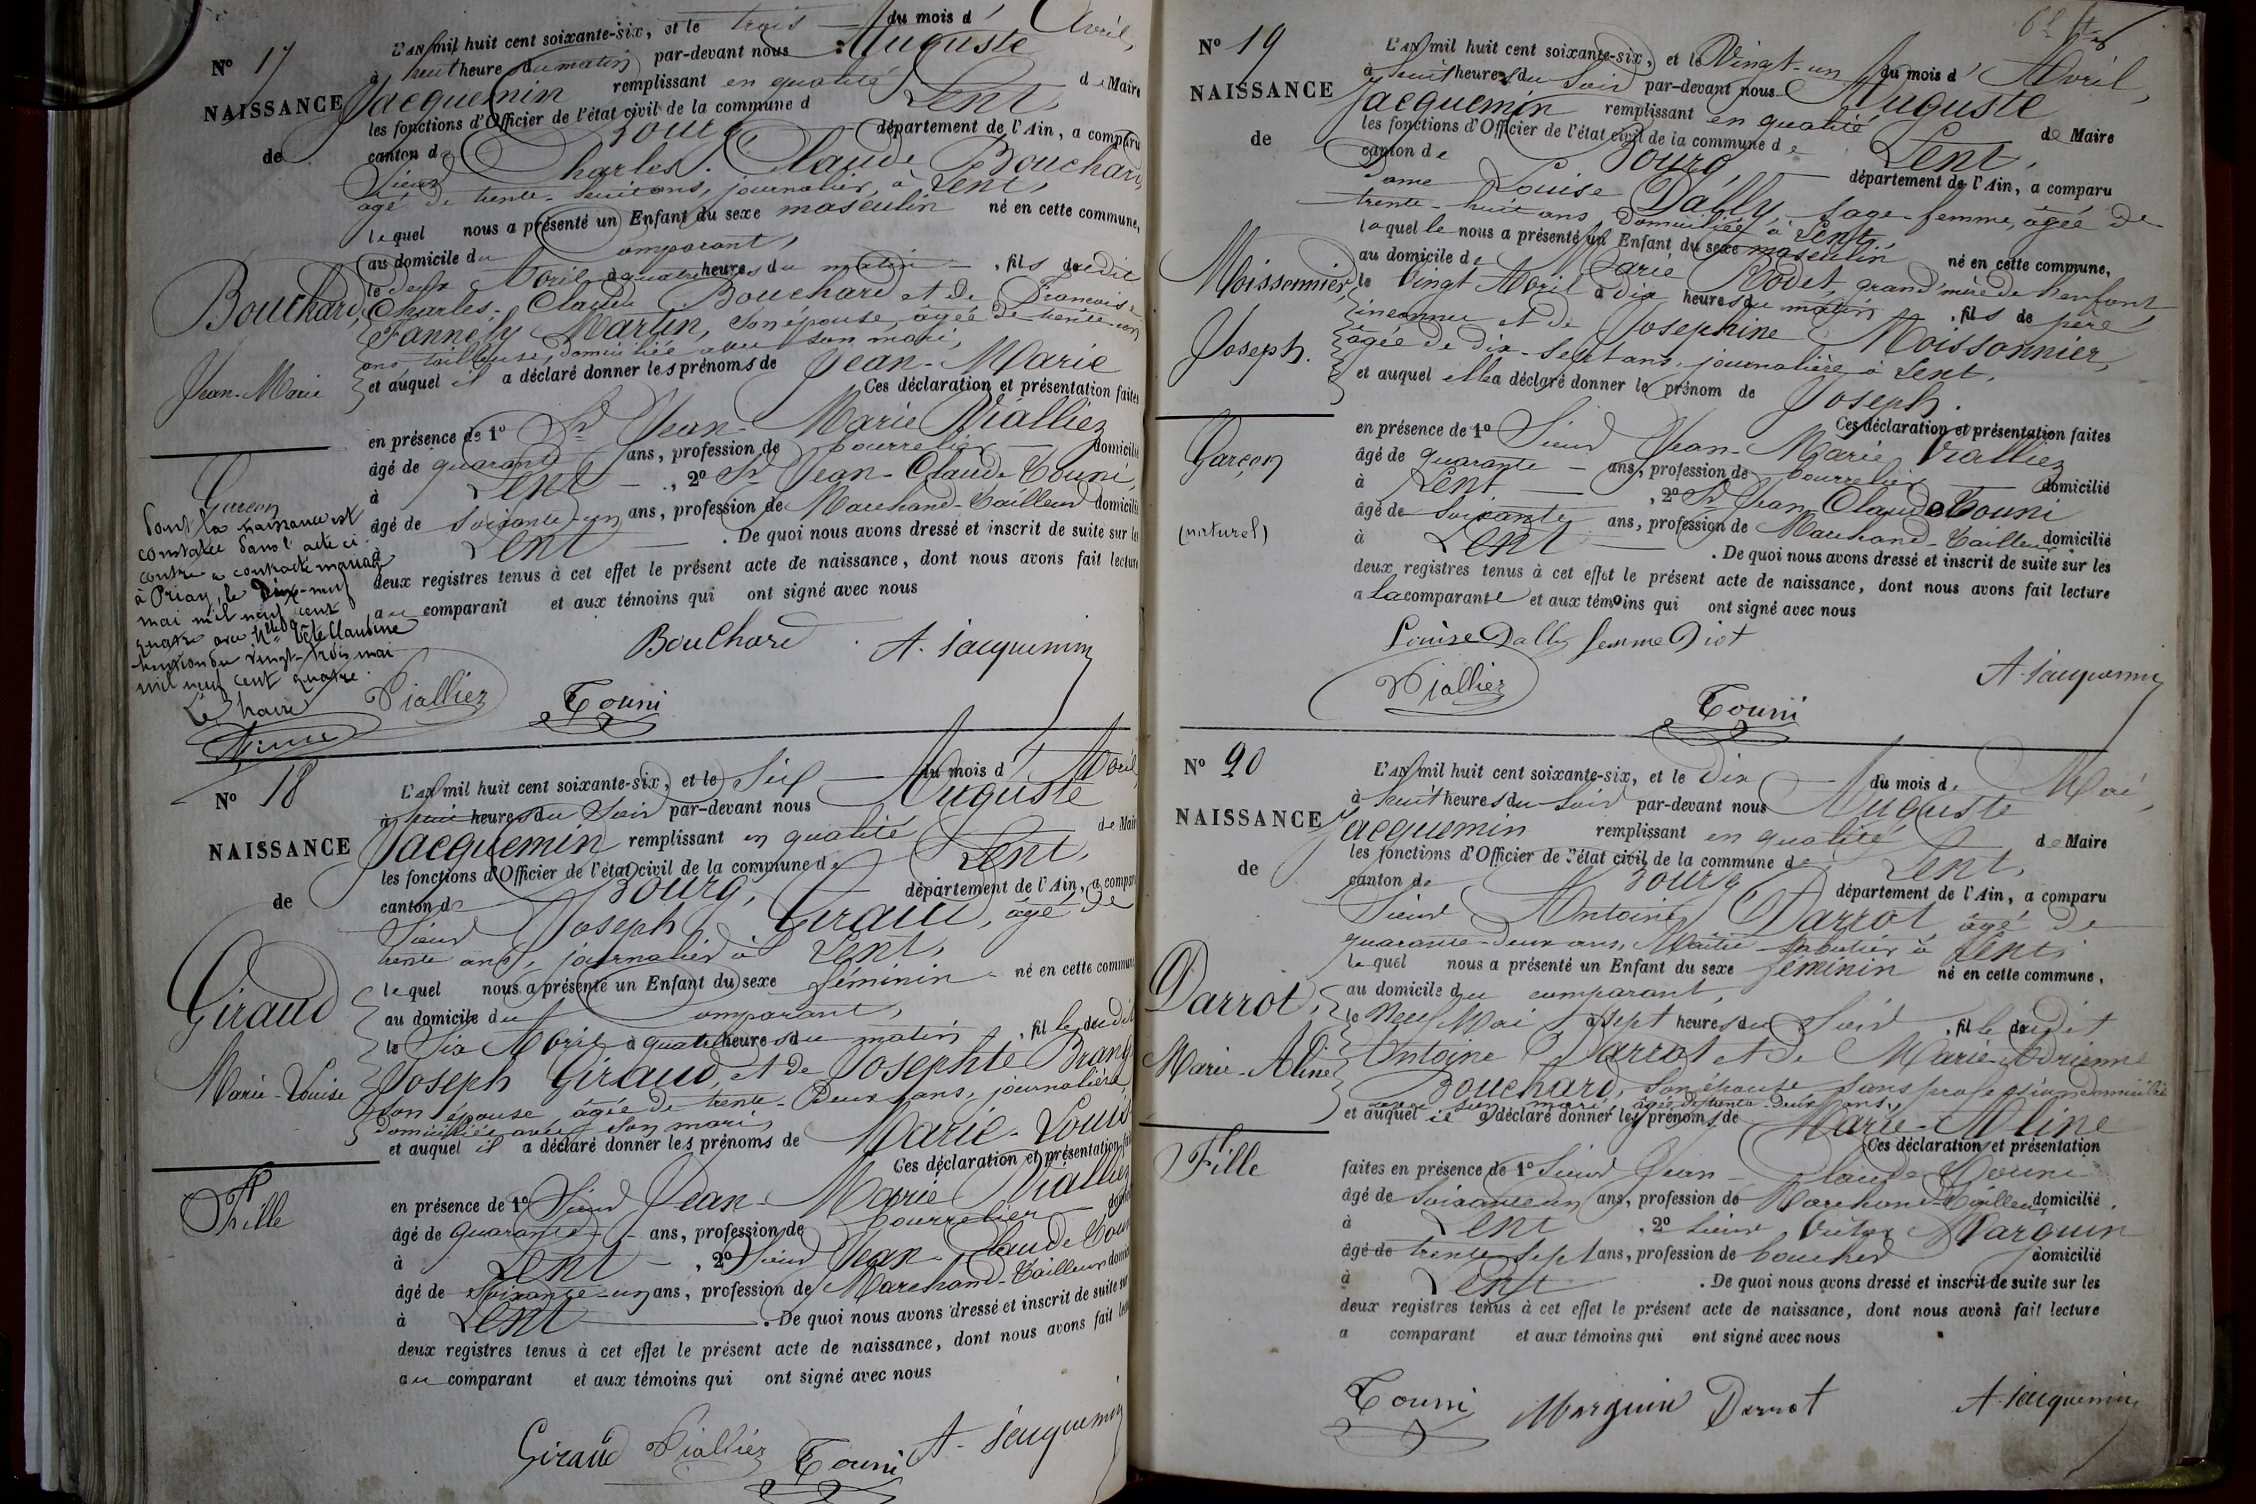 No 17
NAISSANCE
de
Bouchard,
Jean-Marie
Garçon
Dont la naissance est
constatée dans l'acte ci
contre a contracté mariage
à Priay, le Dix-neuf
mai mil neuf cent
quatre avec Claudine
vingt-trois mai
mil neuf cent quatre.
Le Maire
L'AN mil huit cent soixante-six, et le trois du mois d'Avril,
à huit heures du matin par-devant nous Auguste
Jacquemin remplissant en qualité de Maire
les fonctions d'Officier de l'état civil de la commune d Lent,
canton de Bourg département de l'Ain, a comparu
Sieur Charles-Claude Bouchard,
âgé de trente-huit ans, journalier, à Lent,
lequel nous a présenté un Enfant du sexe masculin né en cette commune,
au domicile du Comparant,
le deux Avril à quatre heures du matin, fils dudit
Charles-Claude Bouchard et de Françoise
Fannely Martin, son épouse, âgée de trente
ans, tailleuse, domiciliée avec son mari,
et auquel il a déclaré donner les prénoms de Jean-Marie
Ces déclaration et présentation faites
en présence de 1º Sr Jean-Marie Vialliez
âgé de quarante ans, profession de bourrelier domicilié
à Lent, 2º Sr Jean-Claude Touni,
âgé de soixante-un ans, profession de Marchand-Tailleur domicilié
à Lent. De quoi nous avons dressé et inscrit de suite sur les
deux registres tenus à cet effet le présent acte de naissance, dont nous avons fait lecture
au comparant et aux témoins qui ont signé avec nous
Bouchard A. Jacquemin
Vialliez Touni
No 18
NAISSANCE
de
Giraud
Marie-Louise
Fille
L'AN mil huit cent soixante-six, et le Six du mois d'Avril
à huit heures du Soir par-devant nous Auguste
Jacquemin remplissant en qualité de Maire
les fonctions d'Officier de l'état civil de la commune de Lent,
canton de Bourg, département de l'Ain, a comparu
Sieur Joseph Giraud, âgé de
trente ans, journalier à Lent,
lequel nous a présenté un Enfant du sexe féminin né en cette commune
au domicile du Comparant,
le Six Avril à quatre heures du matin, fille dudit
Joseph Giraud, et de Josephte
son épouse, âgée de trente-deux ans, journalière,
domiciliée avec son mari,
et auquel il a déclaré donner les prénoms de Marie-Louise
Ces déclaration et présentation faites
en présence de 1º Sieur Jean-Marie Vialliez
âgé de quarante ans, profession de bourrelier
à Lent, 2º Sieur Jean-Claude Touni
âgé de Soixante-un ans, profession de Marchand-Tailleur domicilié
à Lent. De quoi nous avons dressé et inscrit de suite sur
deux registres tenus à cet effet le présent acte de naissance, dont nous avons fait lecture
au comparant et aux témoins qui ont signé avec nous
Giraud Vialliez Touni A. Jacquemin
No 19
NAISSANCE
de
Moissonnier,
Joseph.
Garçon
(naturel)
L'AN mil huit cent soixante-six, et le Vingt-un du mois d'Avril,
à huit heures du Soir par-devant nous Auguste
Jacquemin remplissant en qualité de Maire
les fonctions d'Officier de l'état civil de la commune de Lent,
canton de Bourg, département de l'Ain, a comparu
Dame Louise Dally, sage-femme, âgée de
trente-huit ans domiciliée à Lent,
laquelle nous a présenté un Enfant du sexe masculin né en cette commune,
au domicile de Marie Rodet, grand'mère de l'enfant,
le Vingt Avril à dix heures du matin, fils de père
inconnu et de Josephine Moissonnier,
âgée de dix-sept ans, journalière à Lent,
et auquel elle a déclaré donner le prénom de Joseph.
Ces déclaration et présentation faites
en présence de 1º Sieur Jean-Marie Vialliez
âgé de quarante ans, profession de bourrelier domicilié
à Lent, 2º Sr Jean-Claude Touni
âgé de Soixante ans, profession de Marchand-Tailleur domicilié
à Lent. De quoi nous avons dressé et inscrit de suite sur les
deux registres tenus à cet effet le présent acte de naissance, dont nous avons fait lecture
a la comparante et aux témoins qui ont signé avec nous
Louise Dally femme Diot
Vialliez Touni A. Jacquemin
No 20
NAISSANCE
de
Darrot,
Marie-Aline
Fille
L'AN mil huit cent soixante-six, et le Dix du mois de Mai,
à huit heures du Soir par-devant nous Auguste
Jacquemin remplissant en qualité de Maire
les fonctions d'Officier de l'état civil de la commune de Lent,
canton de Bourg département de l'Ain, a comparu
Sieur Antoine Darrot, âgé de
quarante-deux ans, Maître à Lent,
lequel nous a présenté un Enfant du sexe féminin né en cette commune,
au domicile du comparant,
le Neuf Mai à sept heures du Soir, fille dudit
Antoine Darrot et de Marie-Adrienne
Bouchard, son épouse sans profession domiciliée
avec son mari, âgée de trente-deux ans,
et auquel il a déclaré donner les prénoms de Marie-Aline
Ces déclaration et présentation
faites en présence de 1º Sieur Jean-Claude Touni
âgé de Soixante-un ans, profession de Marchand-Tailleur domicilié
à Lent, 2º Sieur Victor Marguin
âgé de trente-sept ans, profession de boucher domicilié
à Lent. De quoi nous avons dressé et inscrit de suite sur les
deux registres tenus à cet effet le présent acte de naissance, dont nous avons fait lecture
a comparant et aux témoins qui ont signé avec nous
Touni Marguin Darrot A. Jacquemin